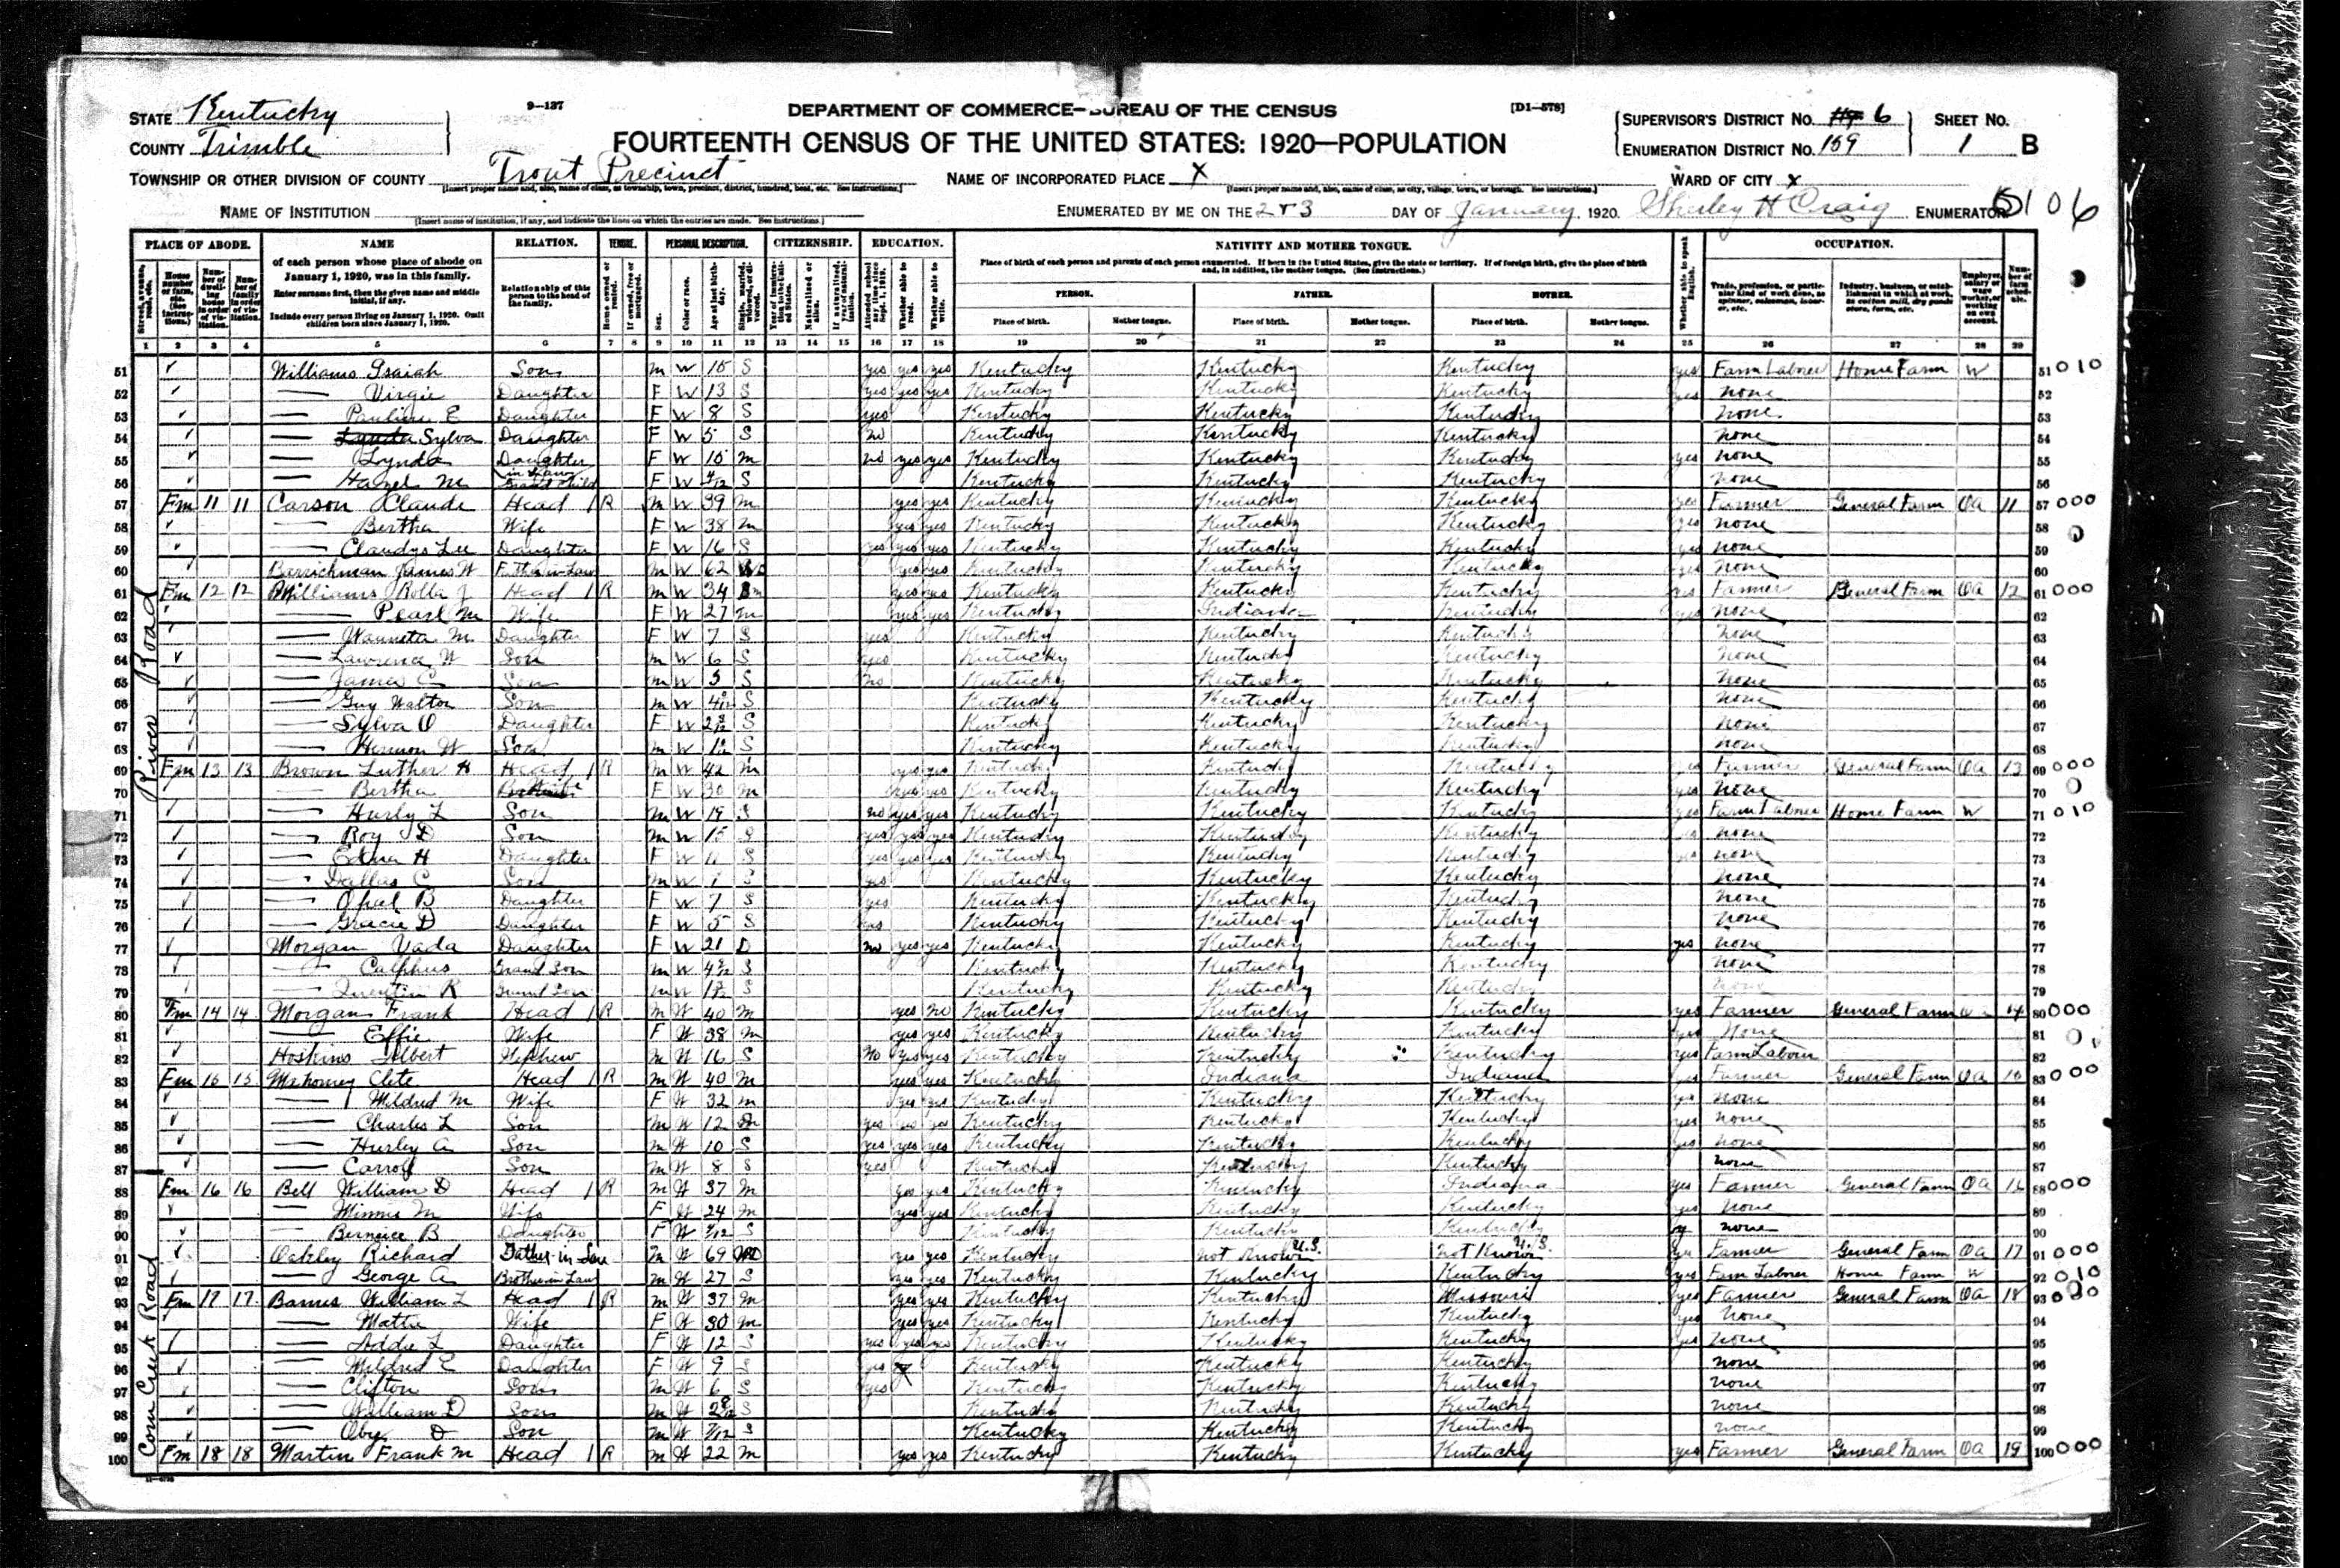 9—137
DEPARTMENT OF COMMERCE—BUREAU OF THE CENSUS
[D1—578]
STATE Kentucky
COUNTY Trimble
FOURTEENTH CENSUS OF THE UNITED STATES: 1920—POPULATION
SUPERVISOR'S DISTRICT No. 6
ENUMERATION DISTRICT No. 159
SHEET No. 1 B
TOWNSHIP OR OTHER DIVISION OF COUNTY Trout Precinct
NAME OF INCORPORATED PLACE X
WARD OF CITY X
NAME OF INSTITUTION
ENUMERATED BY ME ON THE 2 & 3 DAY OF January, 1920. Shirley H Craig ENUMERATOR
5106
PLACE OF ABODE. NAME RELATION. TENURE. PERSONAL DESCRIPTION. CITIZENSHIP. EDUCATION. NATIVITY AND MOTHER TONGUE. OCCUPATION.
of each person whose place of abode on January 1, 1920, was in this family.
Enter surname first, then the given name and middle initial, if any.
Include every person living on January 1, 1920. Omit children born since January 1, 1920.
Relationship of this person to the head of the family.
Place of birth of each person and parents of each person enumerated. If born in the United States, give the state or territory. If of foreign birth, give the place of birth and, in addition, the mother tongue. (See Instructions.)
PERSON. FATHER. MOTHER.
Place of birth. Mother tongue. Place of birth. Mother tongue. Place of birth. Mother tongue.
1 2 3 4 5 6 7 8 9 10 11 12 13 14 15 16 17 18 19 20 21 22 23 24 25 26 27 28 29
River Road
51 Williams Isaiah Son M W 15 S yes yes yes Kentucky Kentucky Kentucky yes Farm Laborer Home Farm W 51 010
52 — Virgie Daughter F W 13 S yes yes yes Kentucky Kentucky Kentucky yes none 52
53 — Pauline E Daughter F W 8 S yes Kentucky Kentucky Kentucky none 53
54 — Lynda Sylva Daughter F W 5 S no Kentucky Kentucky Kentucky none 54
55 — Lynda Daughter in Law F W 15 m no yes yes Kentucky Kentucky Kentucky yes none 55
56 — Hazel M Grand Child F W S Kentucky Kentucky Kentucky none 56
57 Fm 11 11 Carson Claude Head 1 R M W 39 m yes yes Kentucky Kentucky Kentucky yes Farmer General Farm OA 11 57 000
58 — Bertha Wife F W 38 m yes yes Kentucky Kentucky Kentucky yes none 58
59 — Claudys Lee Daughter F W 16 S yes yes yes Kentucky Kentucky Kentucky yes none 59
60 Barrickman James W Father in Law M W 62 yes yes Kentucky Kentucky Kentucky yes none 60
61 Fm 12 12 Williams Rolla J Head 1 R M W 34 m yes yes Kentucky Kentucky Kentucky yes Farmer General Farm OA 12 61 000
62 — Pearl M Wife F W 27 m yes yes Kentucky Indiana Kentucky yes none 62
63 — Waunetta M Daughter F W 7 S yes Kentucky Kentucky Kentucky none 63
64 — Lawrence W Son M W 6 S yes Kentucky Kentucky Kentucky none 64
65 — James C Son M W 5 S no Kentucky Kentucky Kentucky none 65
66 — Guy Walton Son M W S Kentucky Kentucky Kentucky none 66
67 — Sylva O Daughter F W S Kentucky Kentucky Kentucky none 67
68 — Hermon W Son M W S Kentucky Kentucky Kentucky none 68
69 Fm 13 13 Brown Luther H Head 1 R M W 42 m yes yes Kentucky Kentucky Kentucky yes Farmer General Farm OA 13 69 000
70 — Bertha F W 30 m yes yes Kentucky Kentucky Kentucky yes none 70
71 — Hurly L Son M W 19 S no yes yes Kentucky Kentucky Kentucky yes Farm Laborer Home Farm W 71 010
72 — Roy D Son M W 15 S yes yes yes Kentucky Kentucky Kentucky none 72
73 — Edna H Daughter F W 11 S yes yes yes Kentucky Kentucky Kentucky yes none 73
74 — Dallas C Son M W S yes Kentucky Kentucky Kentucky none 74
75 — Opal B Daughter F W 7 S yes Kentucky Kentucky Kentucky none 75
76 — Gracie D Daughter F W 5 S Kentucky Kentucky Kentucky none 76
77 Morgan Vada Daughter F W 21 D no yes yes Kentucky Kentucky Kentucky yes none 77
78 — Calphus Grand Son M W S Kentucky Kentucky Kentucky none 78
79 — Quentin R Grand Son M W S Kentucky Kentucky Kentucky none 79
80 Fm 14 14 Morgan Frank Head 1 R M W 40 m yes no Kentucky Kentucky Kentucky yes Farmer General Farm 14 80 000
81 — Effie Wife F W 38 m yes yes Kentucky Kentucky Kentucky yes None 81
82 Hoskins Nephew M W 16 S No yes yes Kentucky Kentucky Kentucky yes Farm Labour 82
83 Fm 15 15 Mahoney Clete Head 1 R M W 40 m yes yes Kentucky Indiana Indiana yes Farmer General Farm OA 83 000
84 — Mildred M Wife F W 32 m yes yes Kentucky Kentucky Kentucky yes none 84
85 — Charles L Son M W 12 yes yes yes Kentucky Kentucky Kentucky yes none 85
86 — Hurley A Son M W 10 S yes yes yes Kentucky Kentucky Kentucky yes none 86
87 — Carroll Son M W 8 S yes Kentucky Kentucky Kentucky none 87
Corn Creek Road
88 Fm 16 16 Bell William D Head 1 R M W 37 M yes yes Kentucky Kentucky Indiana yes Farmer General Farm OA 16 88 000
89 — Minnie M Wife F W 24 M yes yes Kentucky Kentucky Kentucky yes none 89
90 — Berneice B Daughter F W S Kentucky Kentucky Kentucky none 90
91 Oakley Richard Father in Law M W 69 WD yes yes Kentucky not Known U.S. not Known U.S. yes Farmer General Farm OA 17 91 000
92 — George A Brother in Law M W 27 S yes yes Kentucky Kentucky Kentucky yes Farm Laborer Home Farm W 92 010
93 Fm 17 17 Barnes William L Head 1 R M W 37 M yes yes Kentucky Kentucky Missouri yes Farmer General Farm OA 18 93 000
94 — Mattie Wife F W 30 m yes yes Kentucky Kentucky Kentucky yes None 94
95 — Addie L Daughter F W 12 S yes yes yes Kentucky Kentucky Kentucky yes none 95
96 — Mildred E Daughter F W 9 S yes Kentucky Kentucky Kentucky none 96
97 — Clifton Son M W 6 S yes Kentucky Kentucky Kentucky none 97
98 — William D Son M W S Kentucky Kentucky Kentucky none 98
99 — Oby D Son M W S Kentucky Kentucky Kentucky none 99
100 Fm 18 18 Martin Frank M Head 1 R M W 22 M yes yes Kentucky Kentucky Kentucky yes Farmer General Farm OA 19 100 000